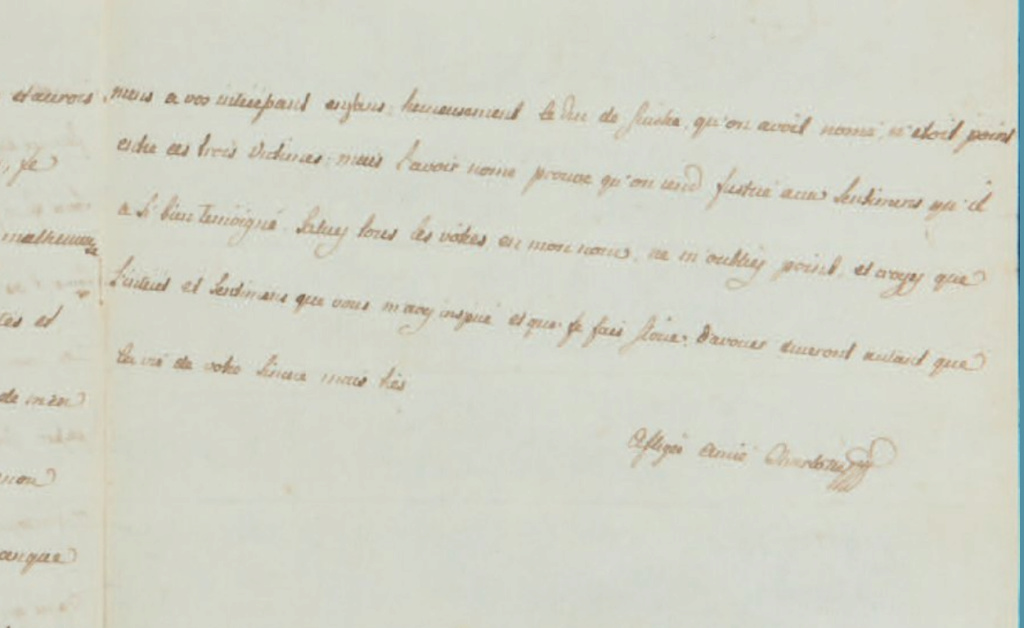 et aurois
, je
malheureuse
tés et
de mon
non
anque
mens a vos intérépant enfans, heureusement le Duc de Guiche, qu'on avoit nomé n'étoit point
entre ces trois victimes, mais l'avoir nomé prouve qu'on rend justice aux sentimens qu'il
a si bien temoigné. Saluez tous les vôtres en mon nom, ne m'oubliez point, et croyez que
l'intérêt et sentimens que vous m'avez inspiré et que je fais gloire d'avouer dureront autant que
la vie de votre sincere mais très
afligée amie